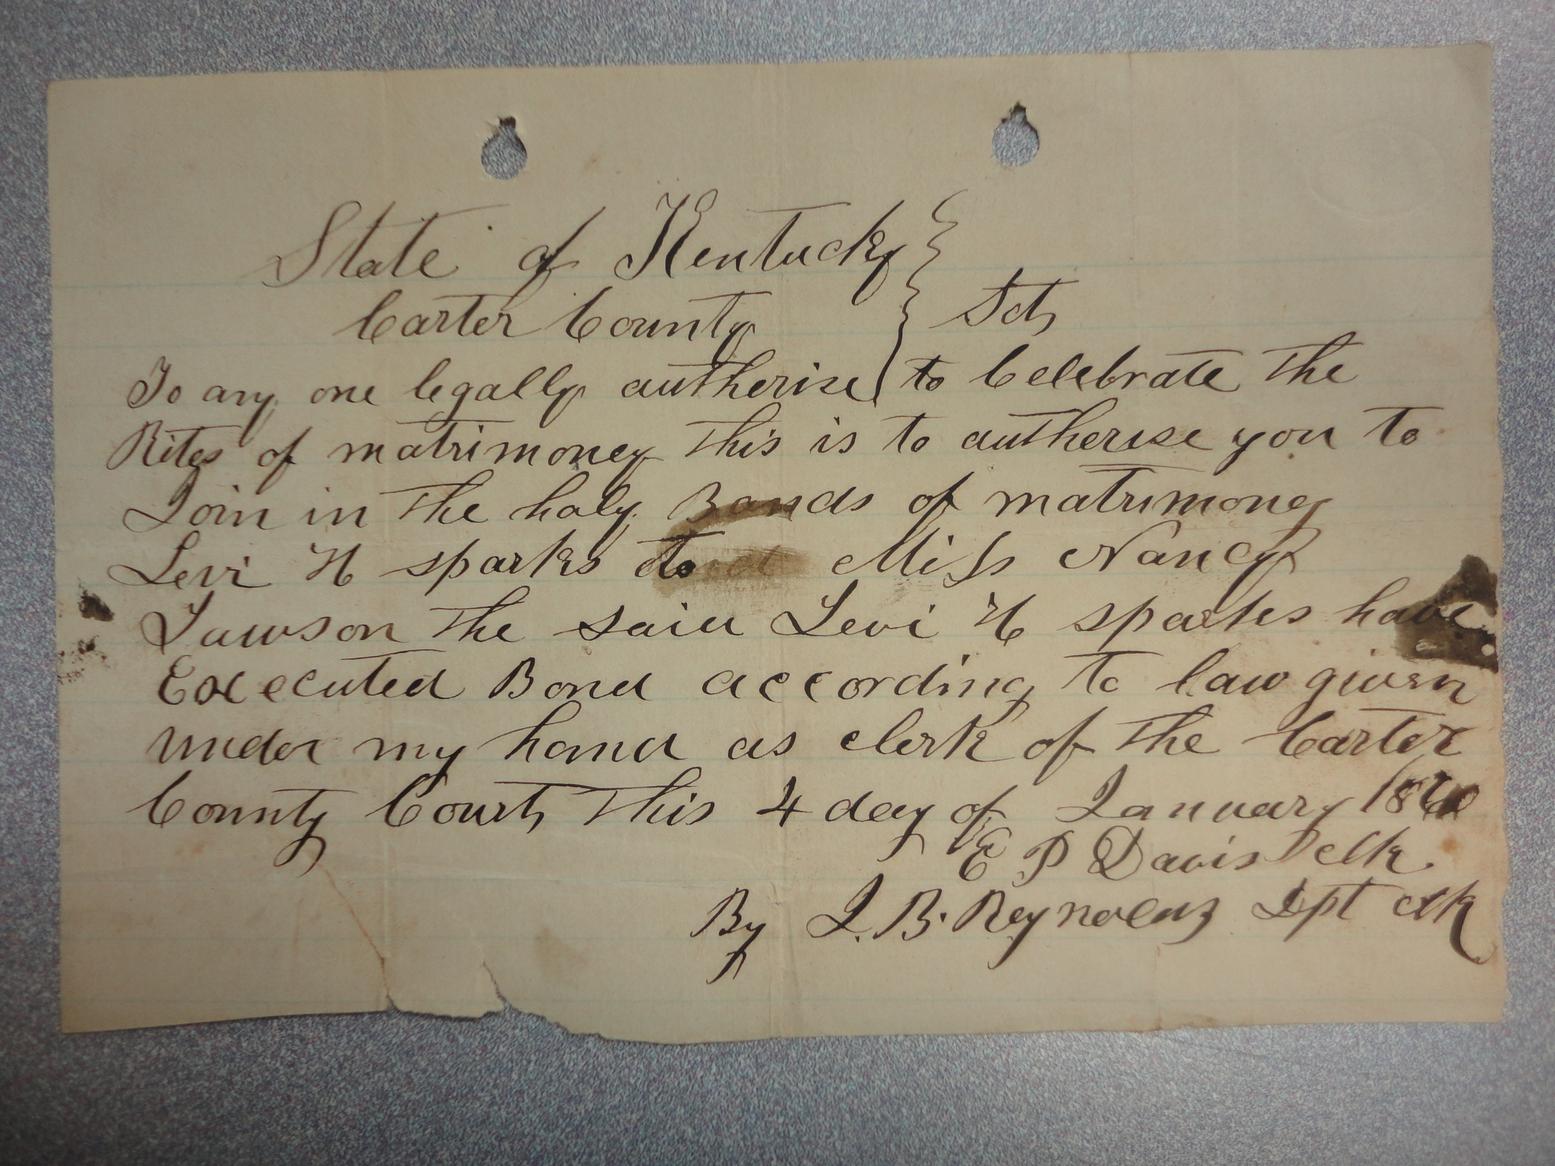 State of Kentucky }
Carter County } Sct,
To any one legally autherise to Celebrate the
Rites of matrimoney this is to autherise you to
Join in the holy Bonds of matrimoney
Levi H sparks to Miss Nancy
Lawson the said Levi H sparkes have
Executed Bond according to law given
under my hand as clerk of the Carter
County Court, this 4 day of January
E P Davis clk.
By J. B. Reynolds Dpt clk